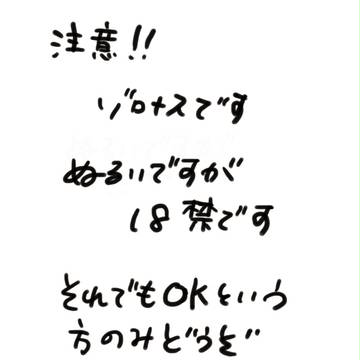 注意!!
ゾロナスです
ぬるいですが
18禁です
それでもOKという
方のみどうぞ